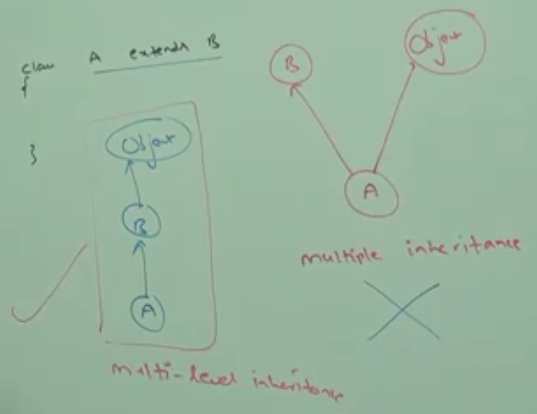 class A extends B
{
}
Object
B
A
multi-level inheritance
B
Object
A
multiple inheritance